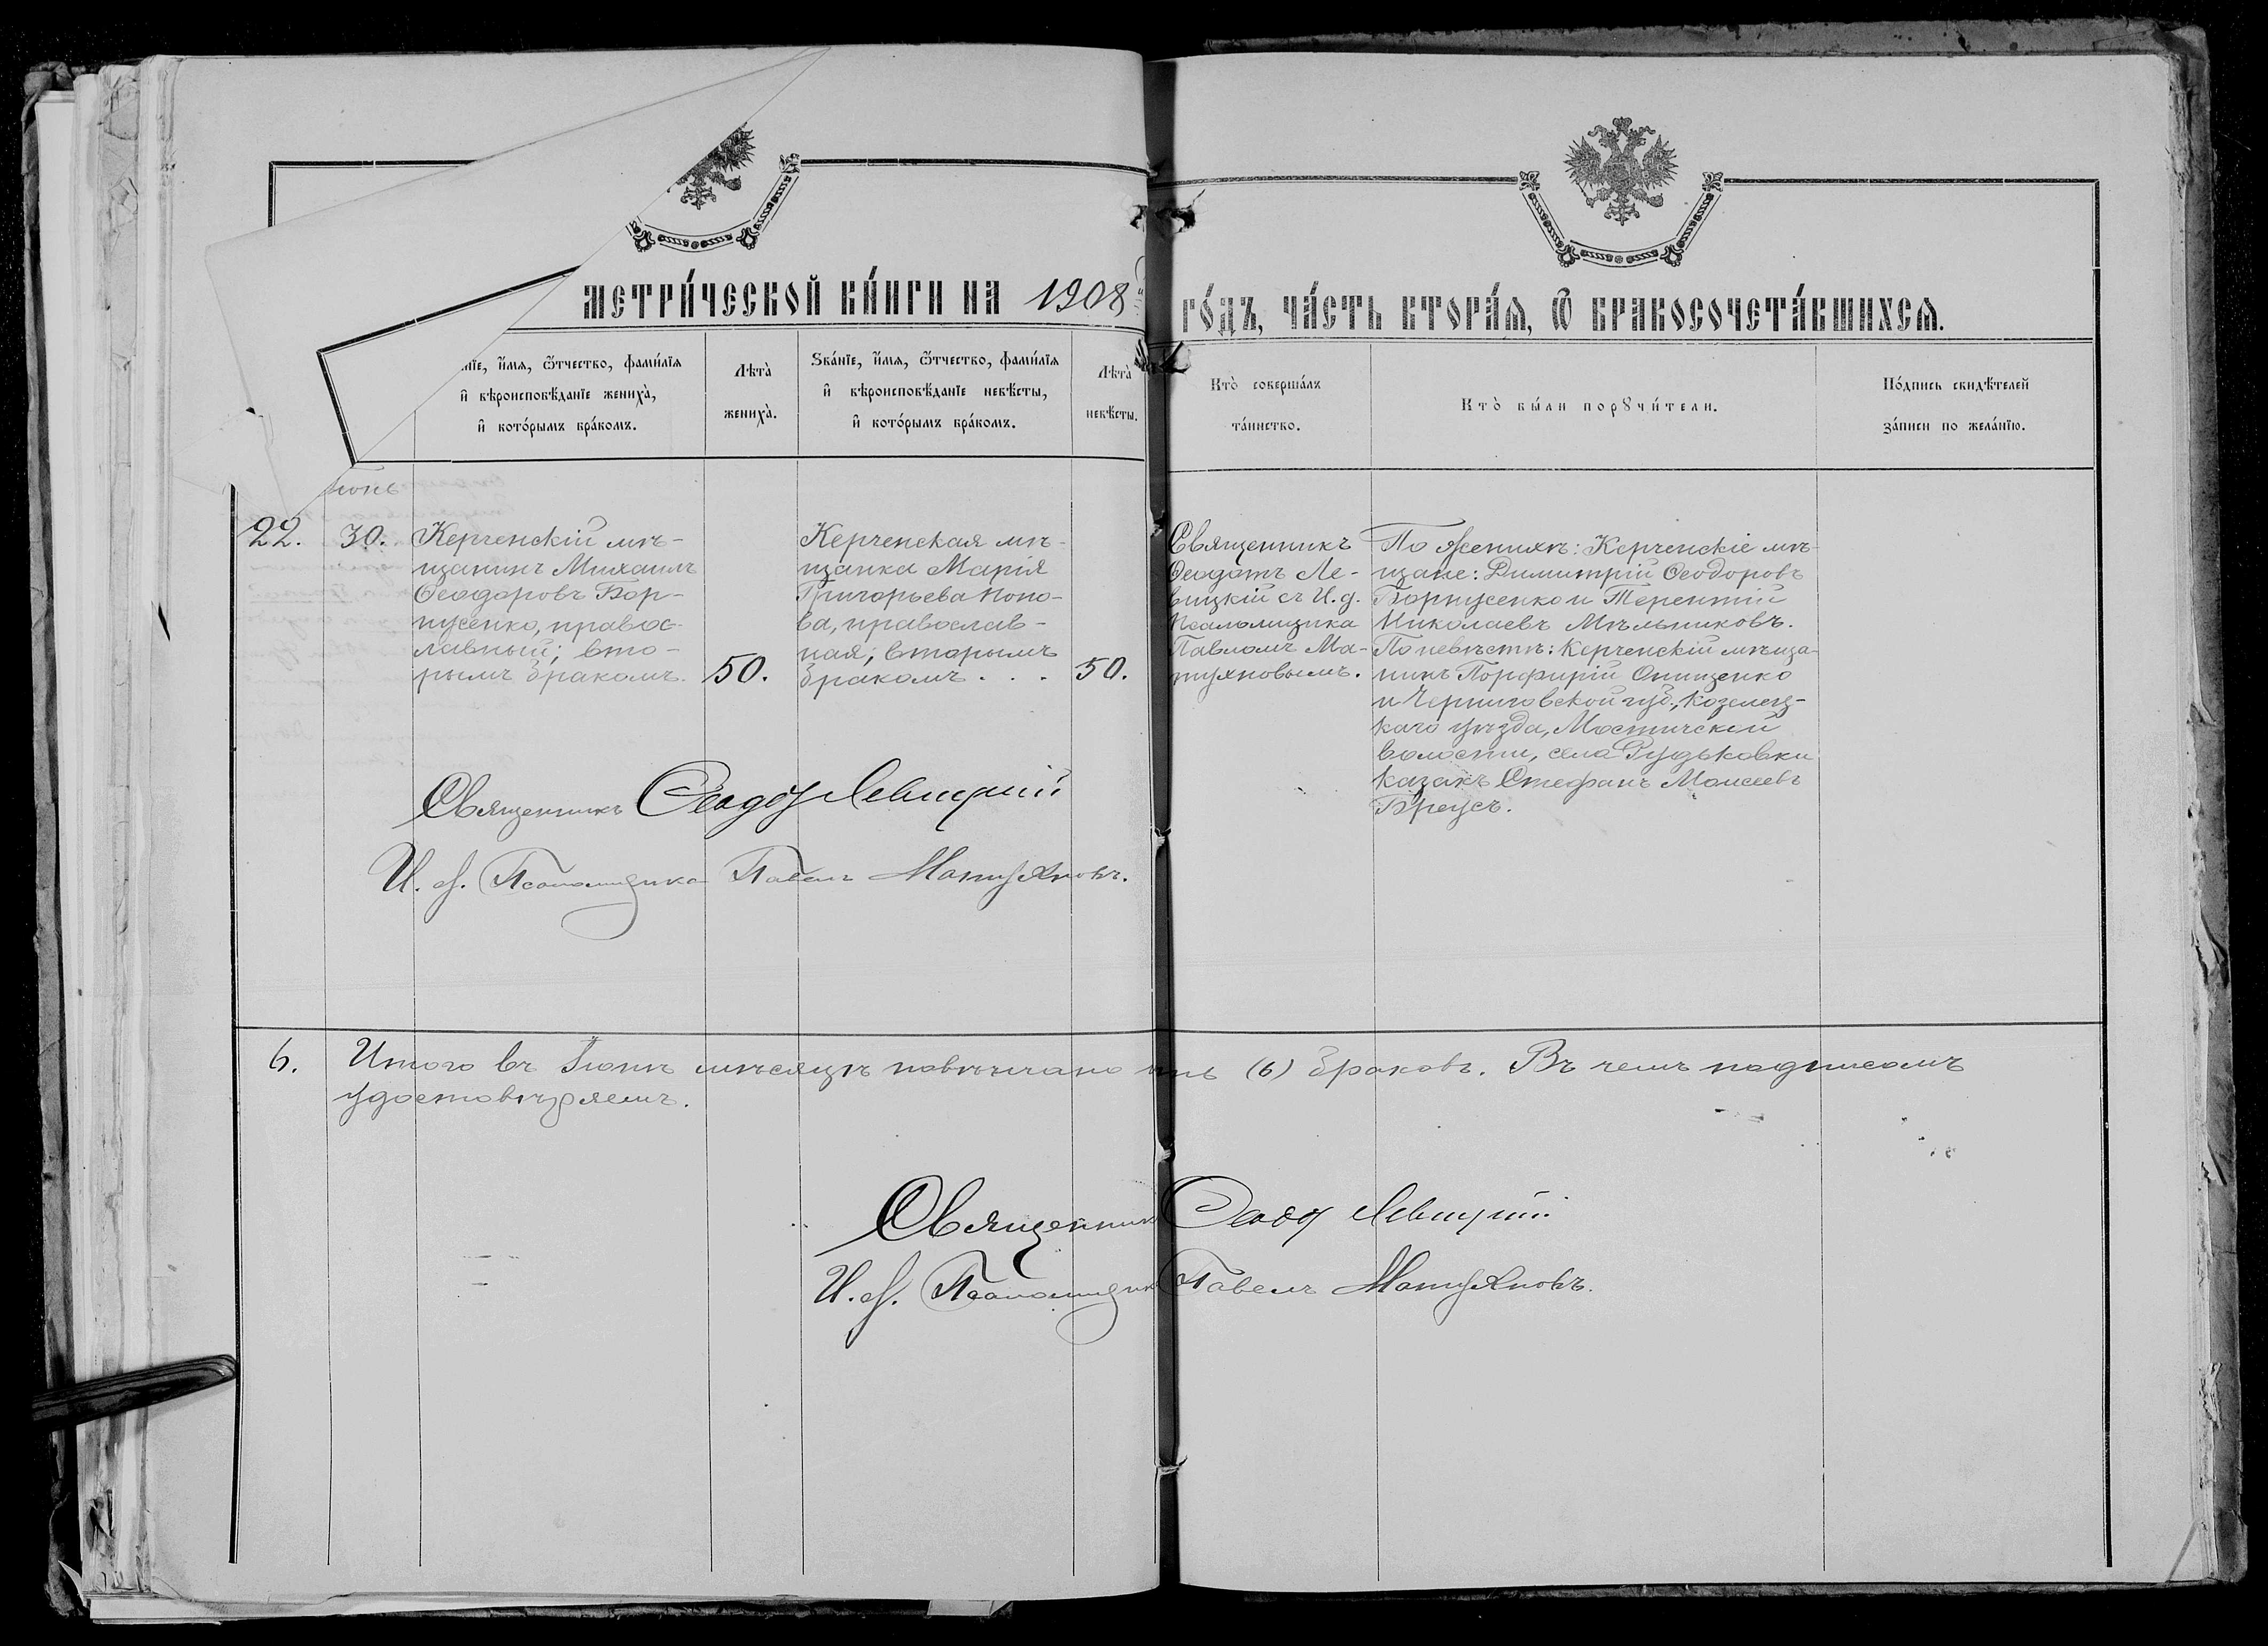 МЕТРИ́ЧЕСКОЙ КНИ́ГИ НА 1908
ГО́ДЪ, ЧА́СТЬ ВТОРА́Я, Ѿ БРАКОСОЧЕТА́ВШИХСЯ.
нїе, и҆́мѧ, ѻ҆́тчество, фами́лїѧ
и҆ вѣроисповѣ́данїе жениха̀,
и҆ кото́рымъ бра́комъ.
Лѣта̀
жениха̀.
Ѕва́нїе, и҆́мѧ, ѻ҆́тчество, фами́лїѧ
и҆ вѣроисповѣ́данїе невѣ́сты,
и҆ кото́рымъ бра́комъ.
Лѣта̀
невѣ́сты.
Кто̀ соверша́лъ
та́инство.
Кто̀ бы́ли порꙋчи́тели.
По́дпись свидѣ́телей
за́писи по жела́нїю.
юнь
22.
30.
Керченскій мѣ-
щанинъ Михаилъ
Ѳеодоровъ Бор-
пусенко, правос-
лавный; вто-
рымъ бракомъ.
50.
Керченская мѣ-
щанка Марія
Григорьева Попо-
ва, православ-
ная; вторымъ
бракомъ . . .
50.
Священникъ
Ѳеодотъ Ле-
вицкій съ И. д.
Псаломщика
Павломъ Ма-
тухновымъ.
По женихѣ: Керченскіе мѣ-
щане: Димитрій Ѳеодоровъ
и Терентій
Николаевъ Мѣльниковъ.
По невѣстѣ: Керченскій мѣща-
нинъ Порфирій Онищенко
и Черниговской губ., Козелец-
каго уѣзда, Мостичской
волости, села Рудьковки
казакъ Стефанъ Моисеевъ
Бреусъ.
Священникъ Ѳеодот Левицкій
И. д. Псаломщика Павелъ Матухновъ.
6.
Итого въ Іюнѣ мѣсяцѣ повѣнчано (6) браковъ. Въ чемъ подписомъ
удостовѣряемъ.
Священник Ѳеодот Левицкій.
И. д. Псаломщик Павелъ Матухновъ.